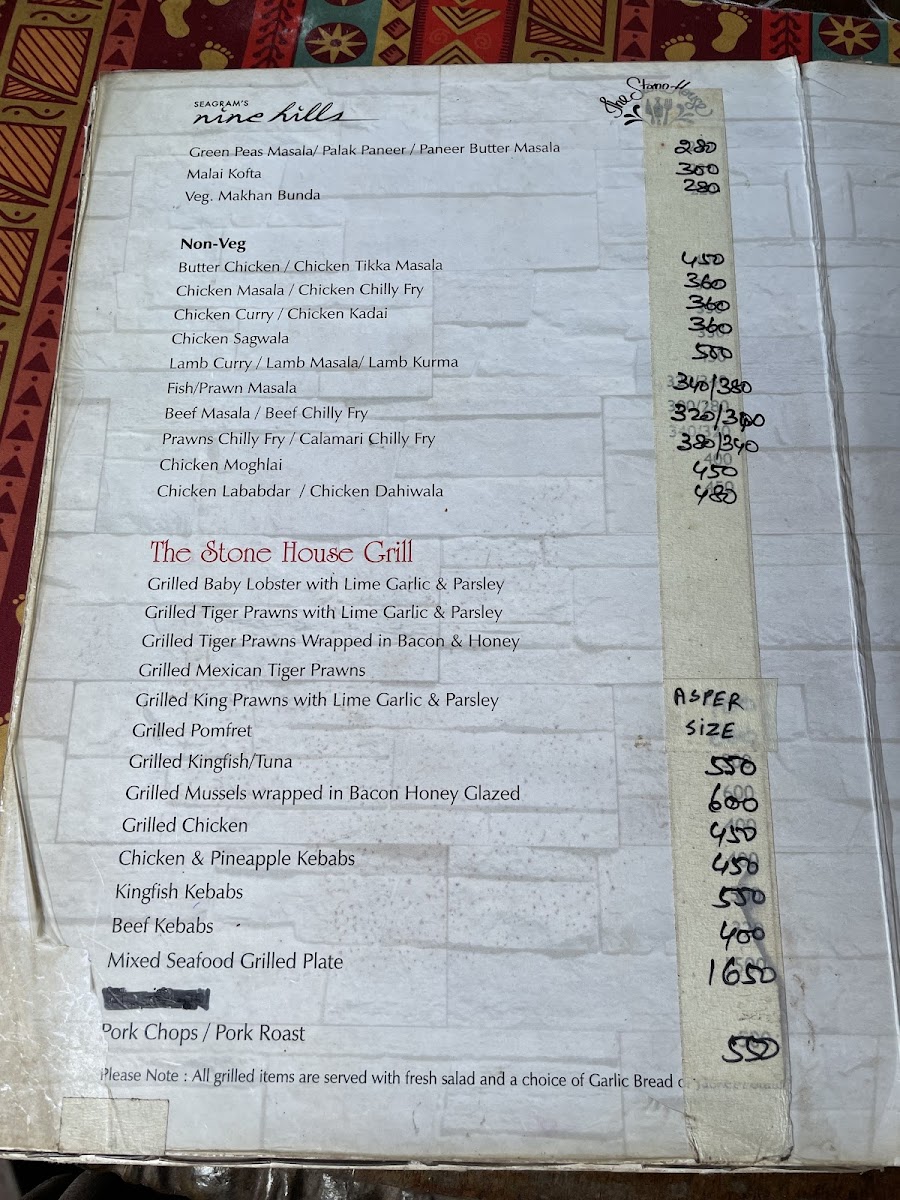 SEAGRAM'S
nine hills
The Stone House
Green Peas Masala/ Palak Paneer / Paneer Butter Masala 280
Malai Kofta 300
Veg. Makhan Bunda 280
Non-Veg
Butter Chicken / Chicken Tikka Masala 450
Chicken Masala / Chicken Chilly Fry 360
Chicken Curry / Chicken Kadai 360
Chicken Sagwala 360
Lamb Curry / Lamb Masala/ Lamb Kurma 500
Fish/Prawn Masala 340/380
Beef Masala / Beef Chilly Fry 320/340
Prawns Chilly Fry / Calamari Chilly Fry 380/340
Chicken Moghlai 450
Chicken Lababdar / Chicken Dahiwala 480
The Stone House Grill
Grilled Baby Lobster with Lime Garlic & Parsley
Grilled Tiger Prawns with Lime Garlic & Parsley
Grilled Tiger Prawns Wrapped in Bacon & Honey
Grilled Mexican Tiger Prawns
Grilled King Prawns with Lime Garlic & Parsley ASPER
Grilled Pomfret SIZE
Grilled Kingfish/Tuna 550
Grilled Mussels wrapped in Bacon Honey Glazed 600
Grilled Chicken 450
Chicken & Pineapple Kebabs 450
Kingfish Kebabs 550
Beef Kebabs 400
Mixed Seafood Grilled Plate 1650
Pork Chops / Pork Roast 550
Please Note : All grilled items are served with fresh salad and a choice of Garlic Bread